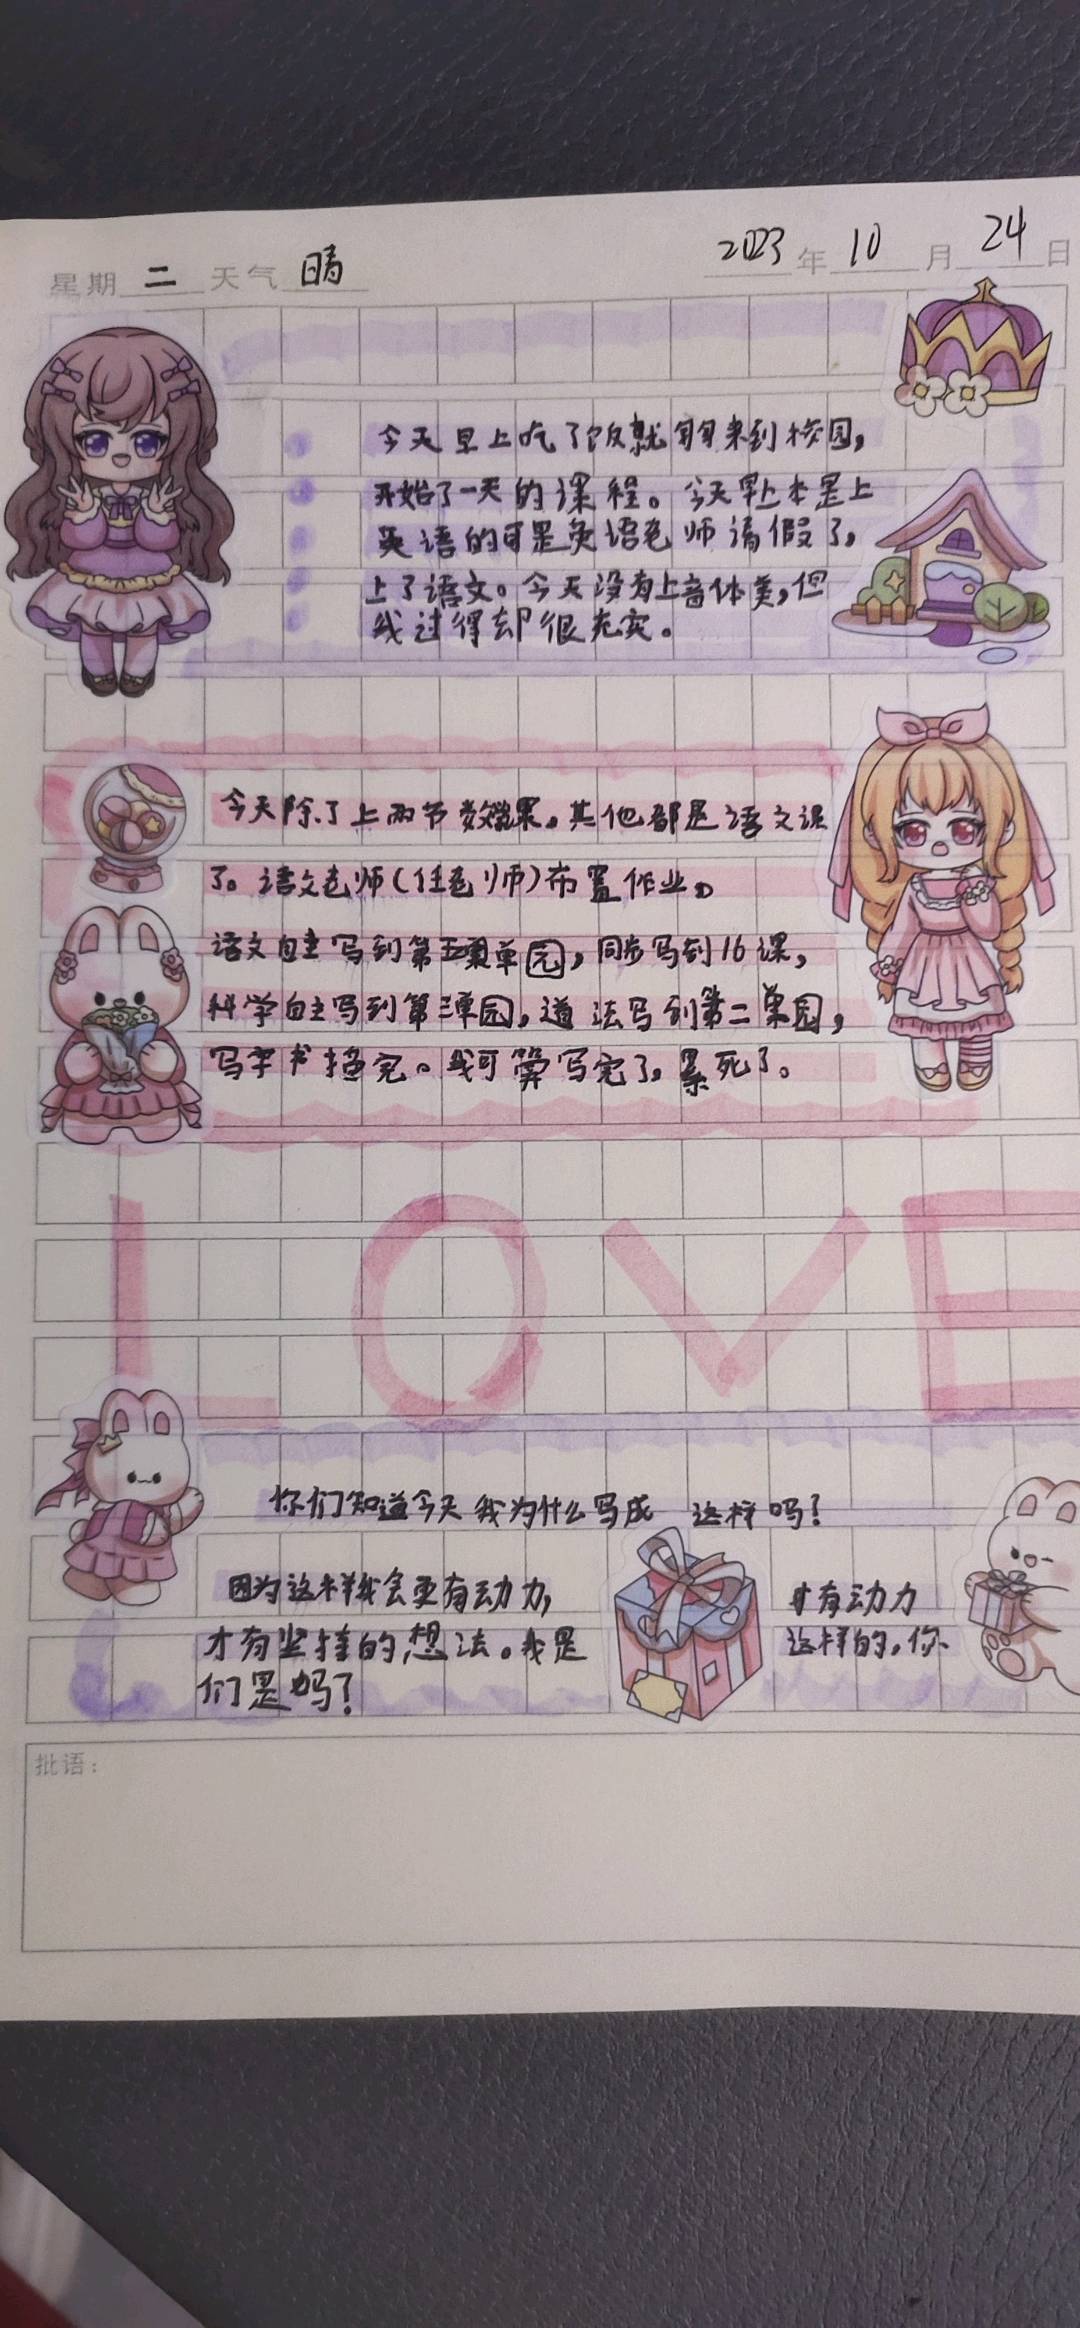 星期 二 天气 晴 2023 年 10 月 24 日
今天早上吃了饭就 来到校园，
开始了一天的课程。今天早上本是上
英语的可是英语老师请假了，
上了语文。今天没有上音体美，但
我过得却很充实。
今天除了上两节数学课。其他都是语文课
了。语文老师（任老师）布置作业。
语文自主写到第五单园，同步写到16课，
科学自主写到第三单园，道法写到第二单园，
写字书描完。我可算写完了，累死了。
LOVE
你们知道今天我为什么写成 这样吗？
因为这样我会更有动力， 才有动力
才有坚持的想法。我是 这样的，你
们是吗？
批语：